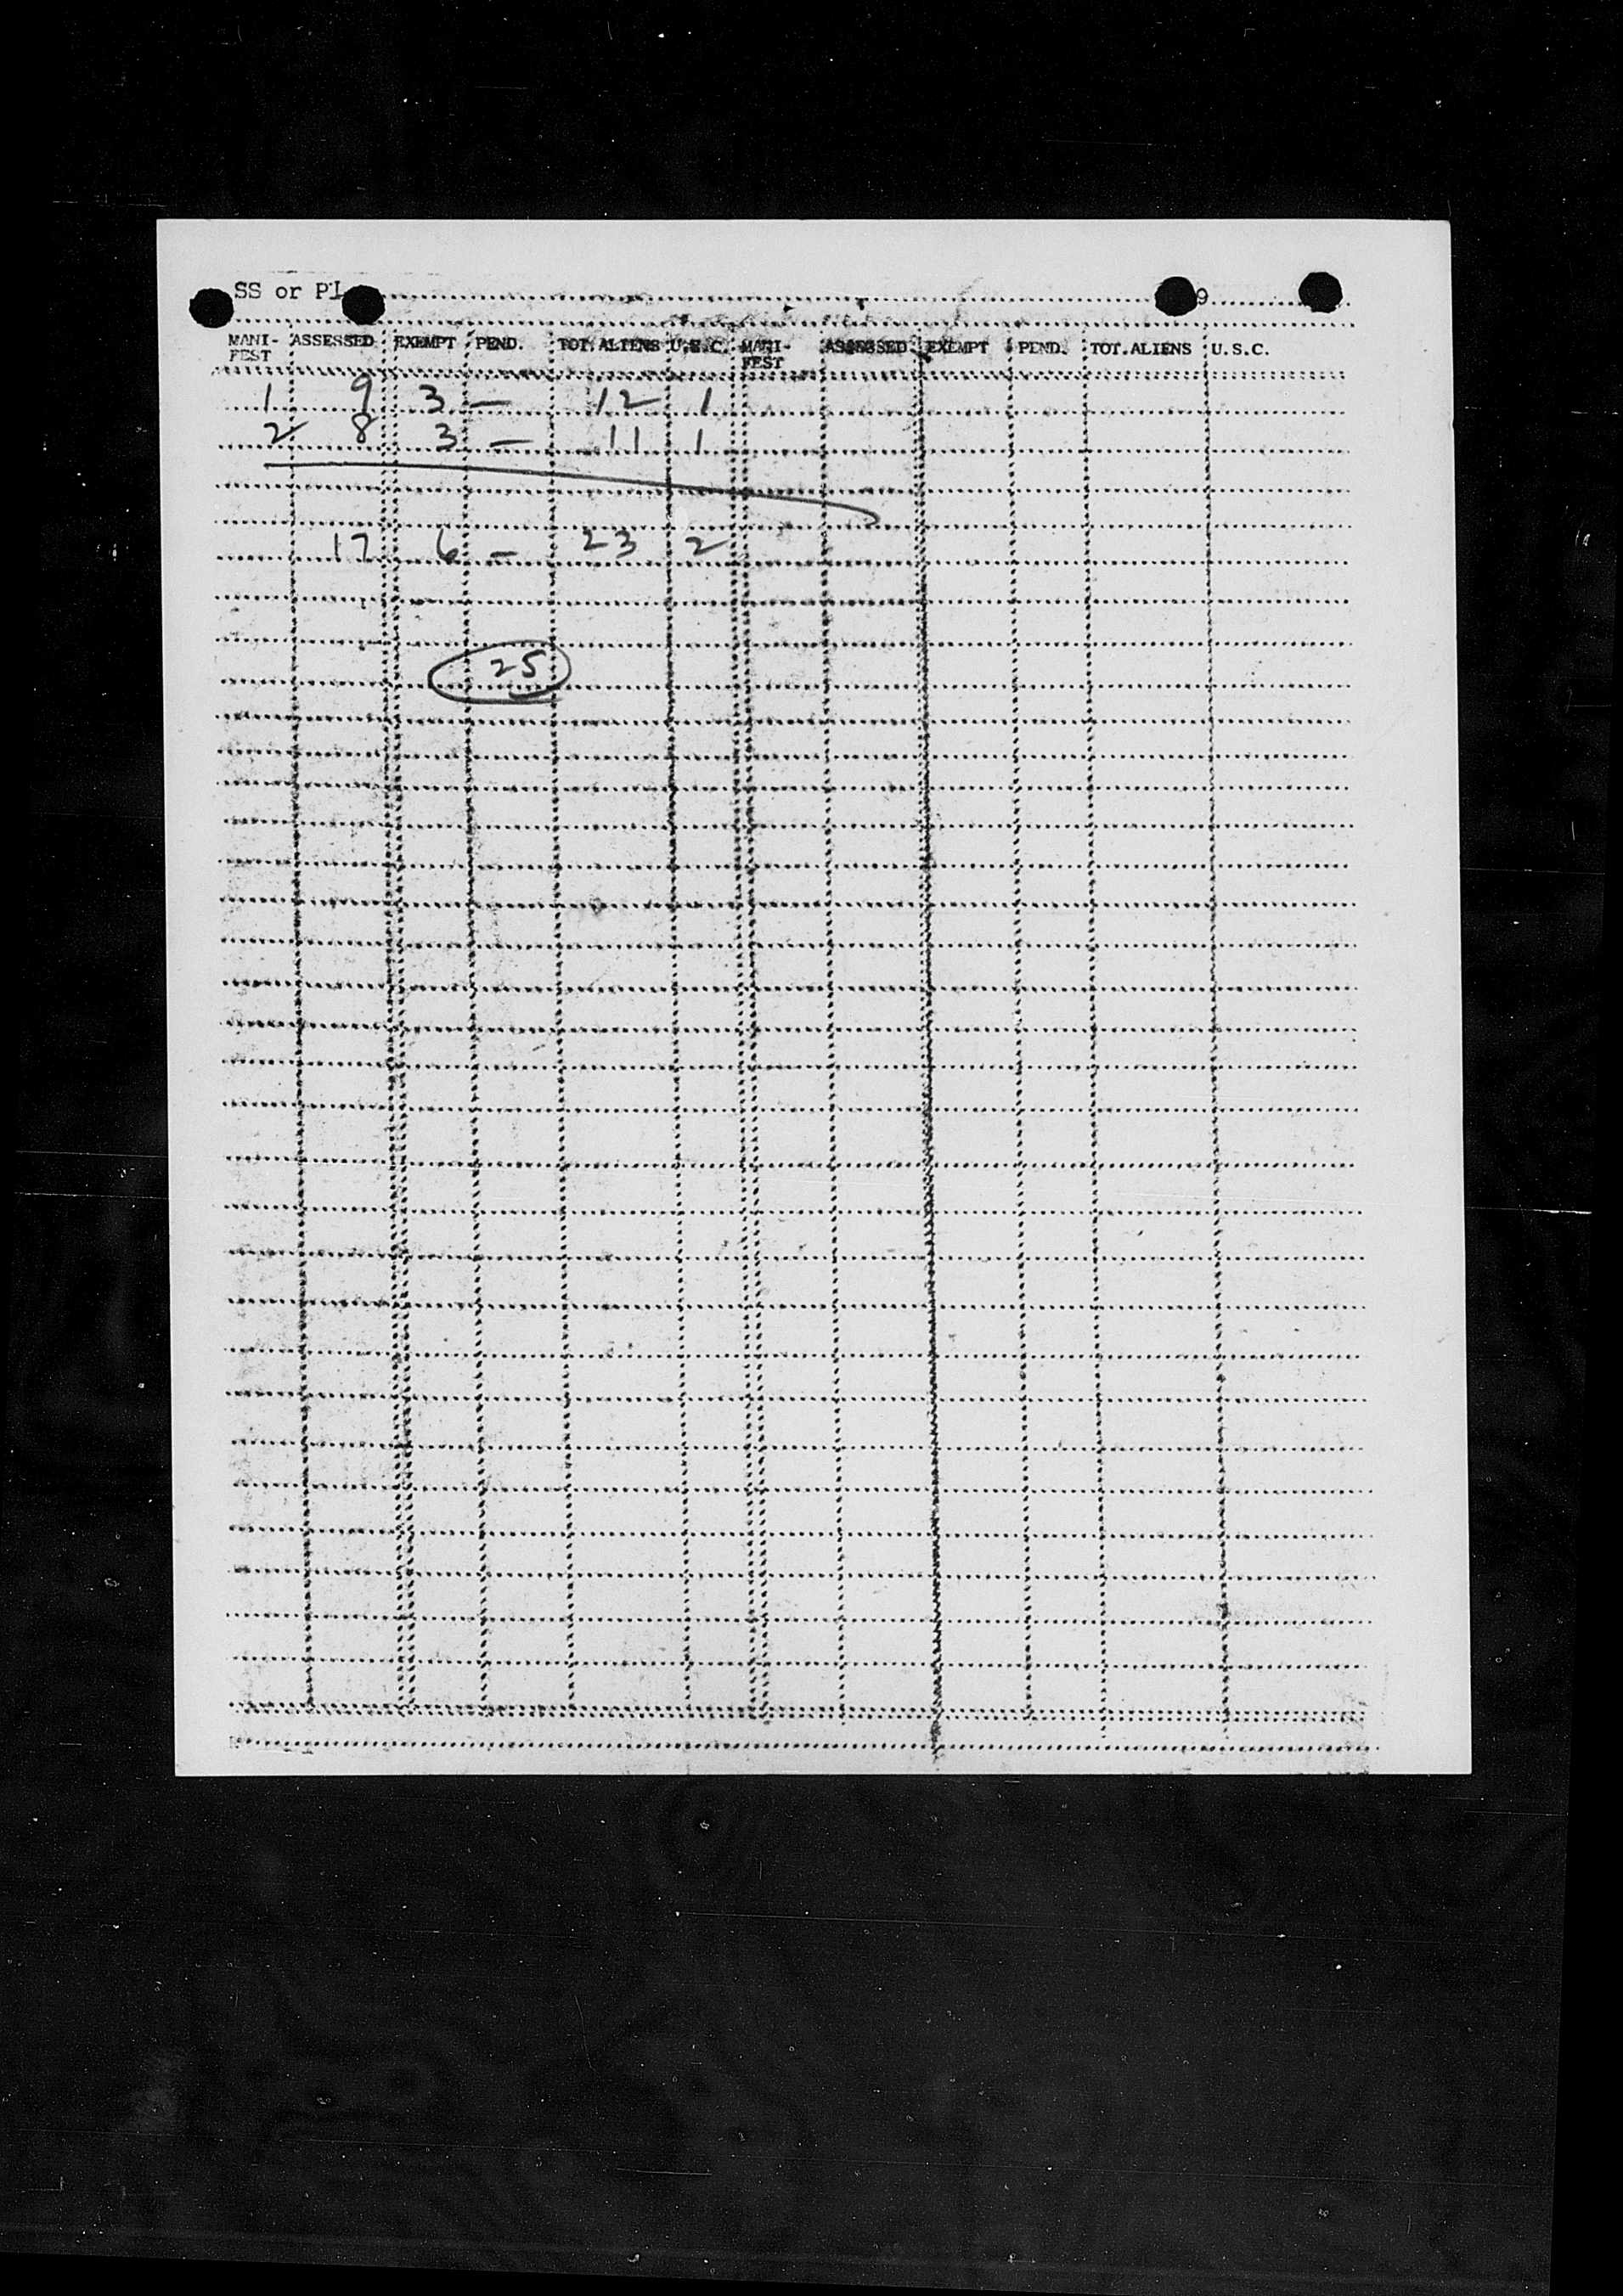 SS or Pl 9
MANI-FEST ASSESSED EXEMPT PEND. TOT. ALIENS U.S.C. MANI-FEST ASSESSED EXEMPT PEND. TOT. ALIENS U.S.C.
1 9 3 — 12 1
2 8 3 — 11 1
17 6 — 23 2
25